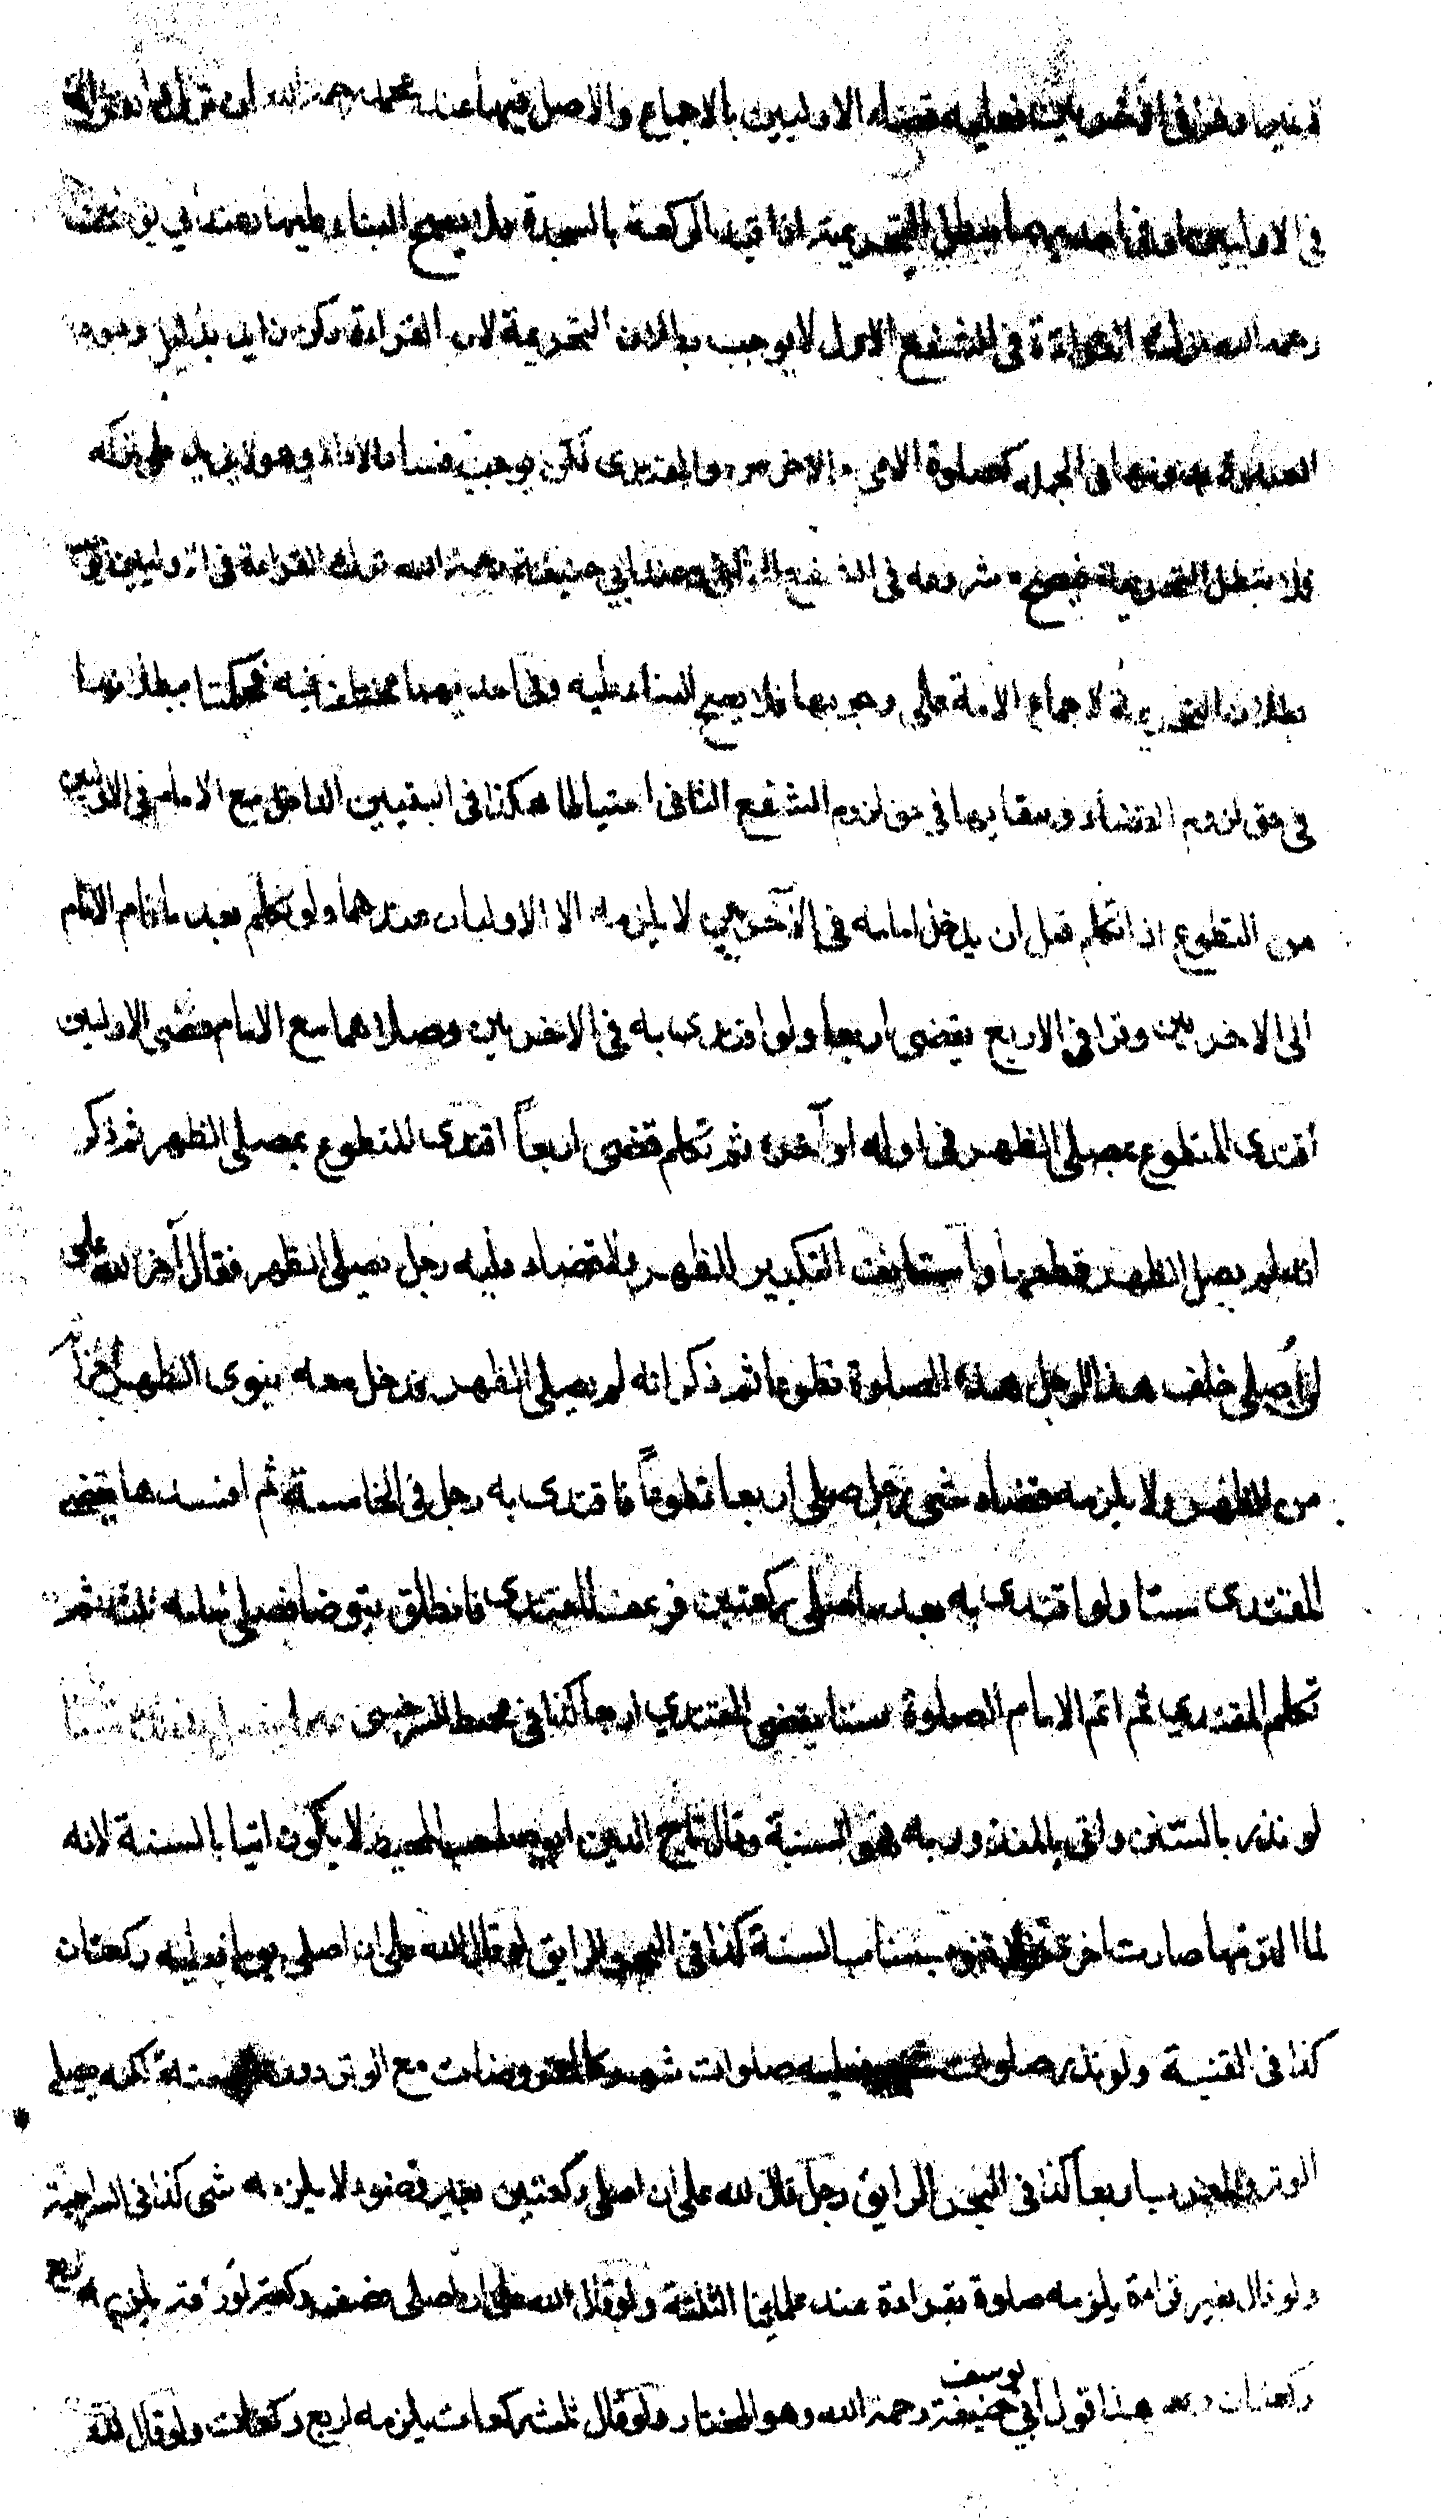 فيهما وفي الأخريين فعليه قضاء الاوليين بالاجماع والاصل فيها عند محمد رحمه الله ان ترك القراءة
في الاوليين او في احديهما يبطل التحريمة اذا قيد الركعة بالسجدة فلا يصح البناء عليها وعند ابي يوسف
رحمه الله ترك القراءة في الشفع الاول لا يوجب بطلان التحريمة لان القراءة ركن زايد بدليل وجود
الصلوة بدونها في الجملة كصلوة الامي والاخرس والمقتدى لكن يوجب فساد الاداء وهو لا يزيد على تركه
فلا تبطل التحريمة فيصح شروعه في الشفع الثاني وعند ابي حنيفة رحمة الله ترك القراءة في الاوليين يوجب
بطلان التحريمة لاجماع الامة على وجوبها فلا يصح البناء عليه وفي احديهما مختلف فيه فحكمنا ببطلانها
في حق لزوم القضاء وبقايها في حق لزوم الشفع الثاني احتياطا هكذا في التبيين الداخل مع الامام في الاوليين
من التطوع اذا تكلم قبل ان يدخل امامه في الآخريين لا يلزمه الا الاوليان عندهما ولو تكلم بعد ما قام الامام
الى الاخريين وقرا في الاربع يقضى اربعا ولو اقتدى به في الاخريين وصلاهما مع الامام قضى الاوليين
اقتدى المتطوع بمصلى الظهر في اوله او آخره ثم تكلم قضى اربعاً اقتدى المتطوع بمصلى الظهر ثم ذكر
انه لم يصل الظهر قطعها واستأنف التكبير للظهر ولا قضاء عليه رجل يصلى الظهر فقال آخر لله على
ان أصلى خلف هذا الرجل هذه الصلوة تطوعا ثم ذكر انه لم يصلى الظهر فدخل معه ينوى الظهر اجزأته
من الظهر ولا يلزمه قضاء شى رجل صلى اربعا تطوعاً فاقتدى به رجل في الخامسة ثم افسدها يقضى
المقتدى ستا ولو اقتدى به بعد ما صلى ركعتين فرعف المقتدى فانطلق يتوضأ فصلى امامه ثلثا ثم
تكلم المقتدى ثم اتم الامام الصلوة ستا يقضى المقتدى اربعا كذا في محيط السرخسى
لو نذر بالسنن واتى بالمنذور به فهو السنة وقال تاج الدين ابو صاحب المحيط لا يكون اتيا بالسنة لانه
لما التزمها صارت اخرى فلا تنوب مناب السنة كذا في البحر الرايق لو قال لله على ان اصلى يوما فعليه ركعتان
كذا في القنية ولو نذر صلوات شهر فعليه صلوات شهر كالمفروضات مع الوتر دون السنة لكنه يصلى
الوتر والمغرب اربعا كذا في البحر الرايق رجل قال لله على ان اصلى ركعتين بغير وضوء لا يلزمه شى كذا في السراجية
ولو قال بغير قراءة يلزمه صلوة بقراءة عند علماينا الثلثة ولو قال لله على ان اصلى نصف ركعة او ركعة يلزمه
ركعتان وهذا قول أبي يوسف حنيفة رحمة الله وهو المختار ولو قال ثلث ركعات يلزمه اربع ركعات ولو قال لله